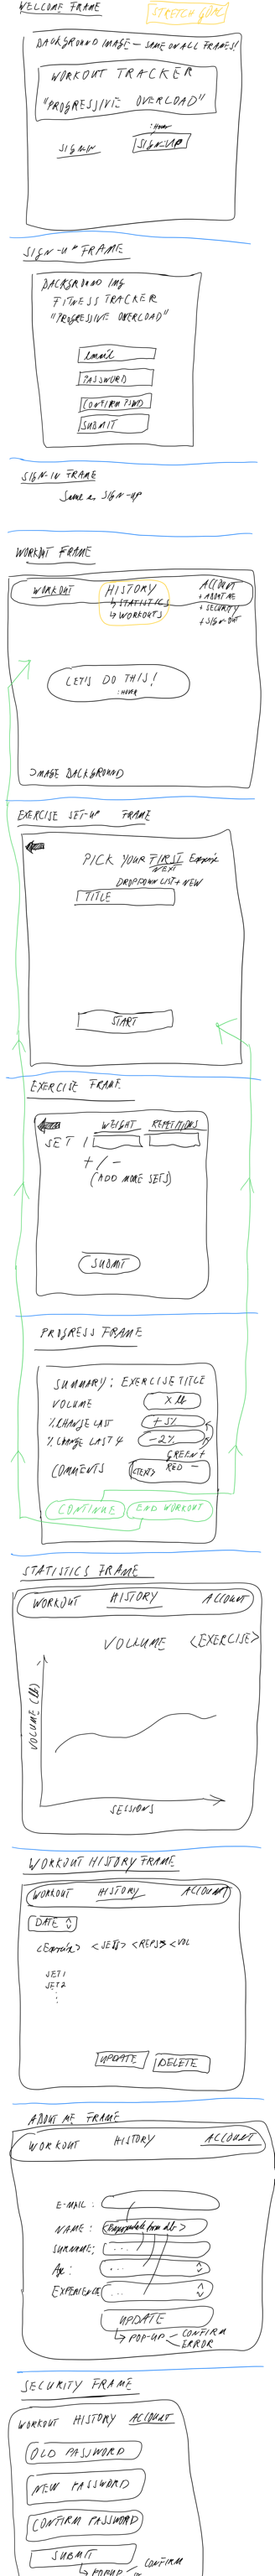 WELCOME FRAME
STRETCH GOAL
BACKGROUND IMAGE - SAME ON ALL FRAMES!
WORKOUT TRACKER
"PROGRESSIVE OVERLOAD"
:HOVER
SIGN-IN SIGN-UP
SIGN-UP FRAME
BACKGROUND IMG
FITNESS TRACKER
"PROGRESSIVE OVERLOAD"
email
PASSWORD
CONFIRM PSWD
SUBMIT
SIGN-IN FRAME
Same as SIGN-UP
WORKOUT FRAME
WORKOUT HISTORY ACCOUNT
↳ STATISTICS + ABOUT ME
↳ WORKOUTS + SECURITY
+ SIGN OUT
LET'S DO THIS!
:HOVER
IMAGE BACKGROUND
EXERCISE SET-UP FRAME
PICK YOUR FIRST Exercise
NEXT
DROPDOWN LIST + NEW
TITLE
START
EXERCISE FRAME
WEIGHT REPETITIONS
SET 1
+ / -
(ADD MORE SETS)
SUBMIT
PROGRESS FRAME
SUMMARY: EXERCISE TITLE
VOLUME X lb
% CHANGE LAST + 5%
% CHANGE LAST 4 - 2%
GREEN +
COMMENTS <TEXT> RED -
CONTINUE END WORKOUT
STATISTICS FRAME
WORKOUT HISTORY ACCOUNT
VOLUME <EXERCISE>
VOLUME (lb)
SESSIONS
WORKOUT HISTORY FRAME
WORKOUT HISTORY ACCOUNT
DATE
<Exercise> <SETS> <REPS> <VOL
SET 1
SET 2
⋮
UPDATE DELETE
ABOUT ME FRAME
WORKOUT HISTORY ACCOUNT
E-MAIL:
NAME: < from db>
SURNAME: ...
Age: ...
EXPERIENCE: ...
UPDATE
↳ POP-UP CONFIRM
ERROR
SECURITY FRAME
WORKOUT HISTORY ACCOUNT
OLD PASSWORD
NEW PASSWORD
CONFIRM PASSWORD
SUBMIT
↳ POPUP CONFIRM